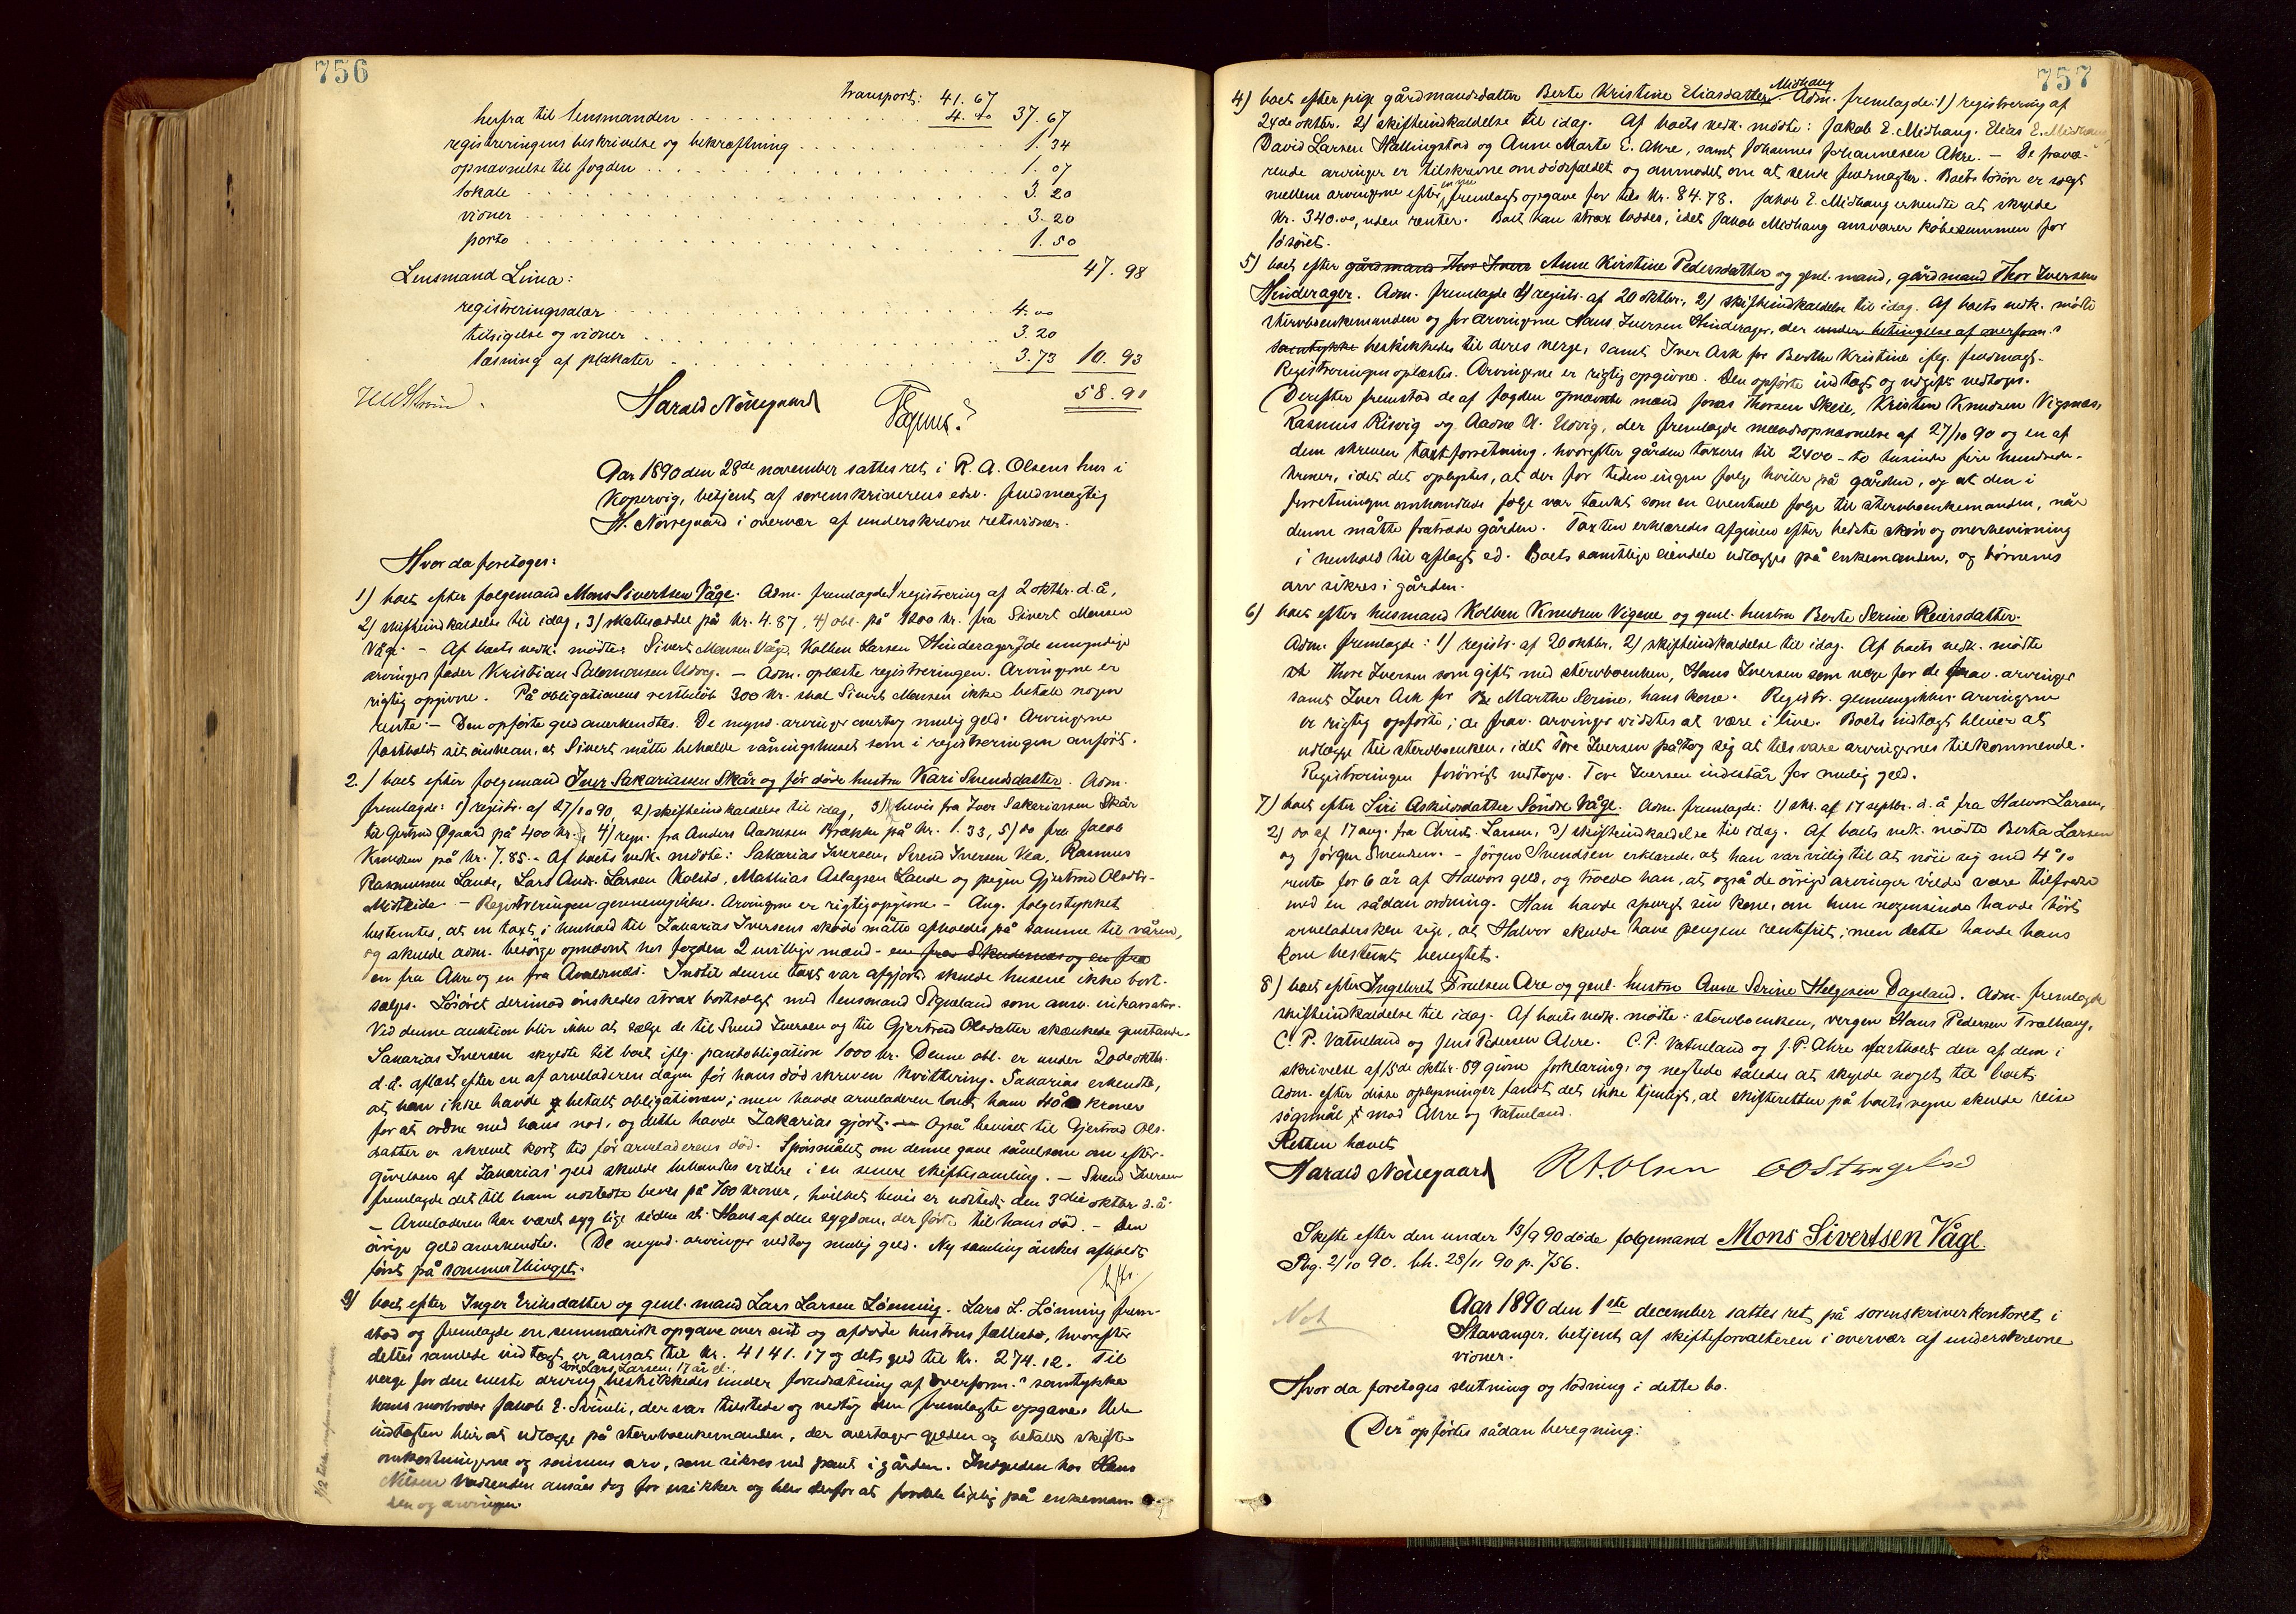 756
Transport: 41.67
herfra til lensmanden 4.00 37.67
registreringens beskrivelse og bekræftning 1.34
opnævnelse til fogden 1.07
lokale 3.20
vidner 3.20
porto 1.50
47.98
Lensmand Lima:
registreringsalær 4.00
tilsigelse og vidner 3.20
læsning af plakater 3.73 10.93
58.91
Harald Nörregaard
Aar 1890 den 28de november sattes ret i R. A. Olsens hus i
Kopervig, betjent af sorenskriverens edsv. fuldmægtig
H. Nörregaard i overvær af underskrevne retsvidner.
Hvor da foretoges:
1) boet efter folgemand Mons Sivertsen Våge. Adm. fremlagde 1) registrering af 2 oktbr. d. å,
2) skifteindkaldelse til idag, 3) skatteseddel på kr. 4.87, 4) obl. på 1200 kr. fra Sivert Monsen
Våge. – Af boets vedk. mödte: Sivert Monsen Våge, Kolben Larsen Hinderager, de umyndige
arvingers fader Kristian Salomonsen Udvig. – Adm. oplæste registreringen. Arvingerne er
rigtig opgivne. På obligationens restbelöb 300 kr. skal Sivert Monsen ikke betale nogen
rente. – Den opförte gjeld anerkendtes. De mynd. arvinger overtog mulig gjeld. Arvingerne
fastholdt sit önskean, at Sivert måtte beholde våningshuset som i registreringen anfört.
2.) boet efter folgemand Iver Sakariassen Skår og för döde hustru Kari Svendsdatter. Adm.
fremlagde: 1) registr. af 27/10 90, 2) skifteindkaldelse til idag, 3) bevis fra Iver Sakariassen Skår
til Gjertrud Øgaard på 400 kr., 4) regn. fra Anders Aadnesen Brække på kr. 1.33, 5) do fra Jacob
Knudsen på kr. 7.85. – Af boets vedk. mödte: Sakarias Iversen, Svend Iversen Vea, Rasmus
Rasmussen Lande, Lars Andr. Larsen Kolstø, Mathias Aslagsen Lande og pigen Gjertrud Olsdtr.
Mideide. – Registreringen gennemgikkes. Arvingerne er rigtig opgivne. – Ang. folgestykket
bestemtes, at en taxt i henhold til Zakarias Iversens sköde måtte afholdes på samme til våren,
og skulde adm. besörge opnævnt hos fogden 2 uvillige mænd – en fra Skudenæs og en fra
en fra Akre og en fra Avaldsnæs. Indtil denne taxt var afgjort, skulde husene ikke bort-
sælges. Lösöret derimod önskedes strax bortsolgt med lensmand Sigveland som ansv. inkassator.
Ved denne auktion blir ikke at sælge de til Svend Iversen og til Gjertrud Olsdatter skænkede gjenstande.
Sakarias Iversen skyldte til boet iflg. pantobligation 1000 kr. Denne obl. er under 20de oktbr.
d. å. aflæst efter en af arveladeren dagen för hans död skreven kvittering. Zakarias erkendte,
at han ikke havde betalt obligationen; men havde arveladeren lovt ham 400 kroner
for at ordne med hans nod, og dette havde Zakarias gjort. Også beviset til Gjertrud Ols-
datter er skrevet kort tid för arveladerens död. Spörsmålet om denne gave såvelsom om efter-
givelsen af Zakarias' gjeld skulde behandles videre i en senere skiftesamling. – Svend Iversen
fremlagde det til ham udstedte bevis på 700 kroner, hvilket bevis er udstedt den 3die oktbr. d. å.
– Arveladeren har været syg lige siden St. Hans af den sygdom, der förte til hans död. – Den
övrige gjeld anerkendtes. De mynd. arvinger vedtog mulig gjeld. Ny samling önskes afholdt
först på sommerthinget.
3) boet efter Inger Eriksdatter og genl. mand Lars Larsen Lönning. Lars L. Lönning frem-
stod og fremlagde en summarisk opgave over sit og afdöde hustrus fællesbo, hvorefter
dettes samlede indtægt er ansat til kr. 4141.17 og dets gjeld til kr. 274.12. Til
verge for den eneste arving Lars Larsen, 17 år gl. beskikkedes under forudsætning af overform.s samtykke
hans morbroder Jakob E. Svineli, der var tilstede og vedtog den fremlagte opgave. Hele
indtægten blir at udlægge på sterboenkemanden, der overtager gjelden og betaler skifte-
omkostningerne og sönnens arv, som sikres ved pant i gården. Indgjelden hos Hans
Nilsen Vadsenden ansåes dog for usikker og blir derfor at fordele ligelig på enkeman-
den og arvingen.
757
4) boet efter pige gårdmandsdatter Berte Kristine Eliasdatter Midhaug. Adm. fremlagde: 1) registrering af
24de oktbr. 2) skifteindkaldelse til idag. Af boets vedk. mödte: Jakob E. Midhaug, Elias E. Midhaug
David Larsen Hallingstad og Anne Marte E. Akre, samt Johannes Johannesen Akre. – De fravæ-
rende arvinger er tilskrevne om dödsfaldet og anmodet om at sende fuldmagter. Boets lösöre er solgt
mellem arvingerne efter en nu fremlagt opgave for tils kr. 84.78. Jakob E. Midhaug erkendte at skylde
kr. 340.00, uden renter. Boet kan strax loddes, idet Jakob Midhaug ansvarer köbesummen for
lösöret.
5) boet efter gårdmand Thor Ivers Anne Kirstine Pedersdatter og genl. mand, gårdmand Thor Iversen
Hinderager. Adm. fremlagde 1) registr. af 20 oktbr., 2) skifteindkaldelse til idag. Af boets vedk. mödte
sterboenkemanden og for arvingerne Hans Iversen Hinderager, der under betingelse af overform.s
samtykke beskikkedes til deres verge, samt Iver Ask for Berthe Kristine iflg. fuldmagt.
Registreringen oplæstes. Arvingerne er rigtig opgivne. Den opförte indtægt og udgift vedtoges.
Derefter fremstod de af fogden opnævnte mænd Jonas Thorsen Skeie, Kristen Knudsen Vignæs,
Rasmus Risvig og Aadne A. Udvig, der fremlagde mændsopnævnelse af 27/10 90 og en af
dem skreven taxtforretning, hvorefter gården taxeres til 2400 – to tusinde fire hundrede –
kroner, idet det oplystes, at der for tiden ingen folge hviler på gården, og at den i
forretningen omhandlede folge var tænkt som en eventuel folge til sterboenkemanden, når
denne måtte fratræde gården. Taxten erklæredes afgiven efter bedste skön og overbevisning
i henhold til aflagt ed. Boets samtlige eiendele udlægges på enkemanden, og börnenes
arv sikres i gården.
6) boet efter husmand Kolben Knudsen Vigene og genl. hustru Berte Serine Reiersdatter.
Adm. fremlagde: 1) registr. af 20 oktbr., 2) skifteindkaldelse til idag. Af boets vedk. mödte
Thore Iversen som gift med sterboenken, Hans Iversen som verge for de frav. arvinger
samt Iver Ask for Marthe Serine, hans kone. Registr. gennemgikkes. Arvingerne
er rigtig opförte; de frav. arvinger vidstes at være i live. Boets indtægt bliver at
udlægge til sterboenken, idet Tore Iversen påtog sig at tilsvare arvingernes tilkommende.
Registreringen forövrigt vedtoges. Tore Iversen indestår for mulig gjeld.
7) boet efter Siri Askilsdatter Söndre Våge. Adm. fremlagde: 1) skr. af 17 septbr. d. å fra Halvor Larsen,
2) do af 17 aug. fra Christ. Larsen, 3) skifteindkaldelse til idag. Af boets vedk. mödte Berta Larsen
og Jörgen Svendsen. – Jörgen Svendsen erklærede, at han var villig til at nöie sig med 4%
rente for 6 år af Halvors gjeld, og troede han, at også de övrige arvinger vilde være tilfredse
med en sådan ordning. Han havde spurgt sin kone, om hun nogensinde havde hört
arveladersken sige, at Halvor skulde have pengene rentefrit; men dette havde hans
kone bestemt benegtet.
8) boet efter Ingebret Troelsen Are og genl. hustru Anne Serine Helgesen Dagsland. Adm. fremlagde
skifteindkaldelse til idag. Af boets vedk. mödte: sterboenken, vergen Hans Pedersen Tralhaug,
C. P. Vatneland og Jens Pedersen Akre. C. P. Vatneland og J. P. Akre fastholdt den af dem i
skrivelse af 15de oktbr. 89 givne forklaring, og negtede således at skylde noget til boet.
Adm. efter disse oplysninger fandt det ikke tjenligt, at skifteretten på boets vegne skulde reise
sögsmål mod Akre og Vatneland.
Retten hævet
Harald Nörregaard R A Olsen
Skifte efter den under 13/9 90 döde folgemand Mons Sivertsen Våge.
Reg. 2/10 90. bh. 28/11 90 p. 756.
Not
Aar 1890 den 1ste december sattes ret på sorenskriverkontoret i
Stavanger, betjent af skifteforvalteren i overvær af underskrevne
vidner.
Hvor da foretoges slutning og lodning i dette bo.
Der opförtes sådan beregning: